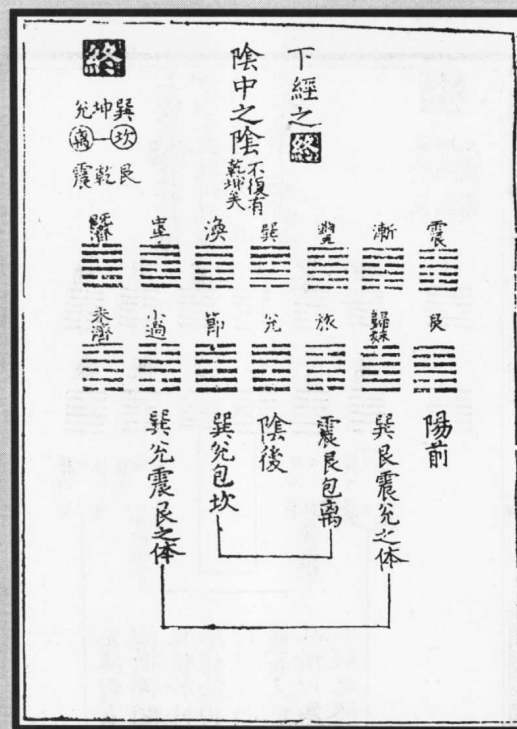 下經之終
陰中之陰不復有
乾坤矣
終
兊坤巽
離坎
震乾艮
震
漸
豐
巽
渙
中孚
旣濟
艮
歸妹
旅
兊
節
小過
未濟
陽前
巽艮震兊之体
震艮包离
陰後
巽兊包坎
巽兊震艮之体